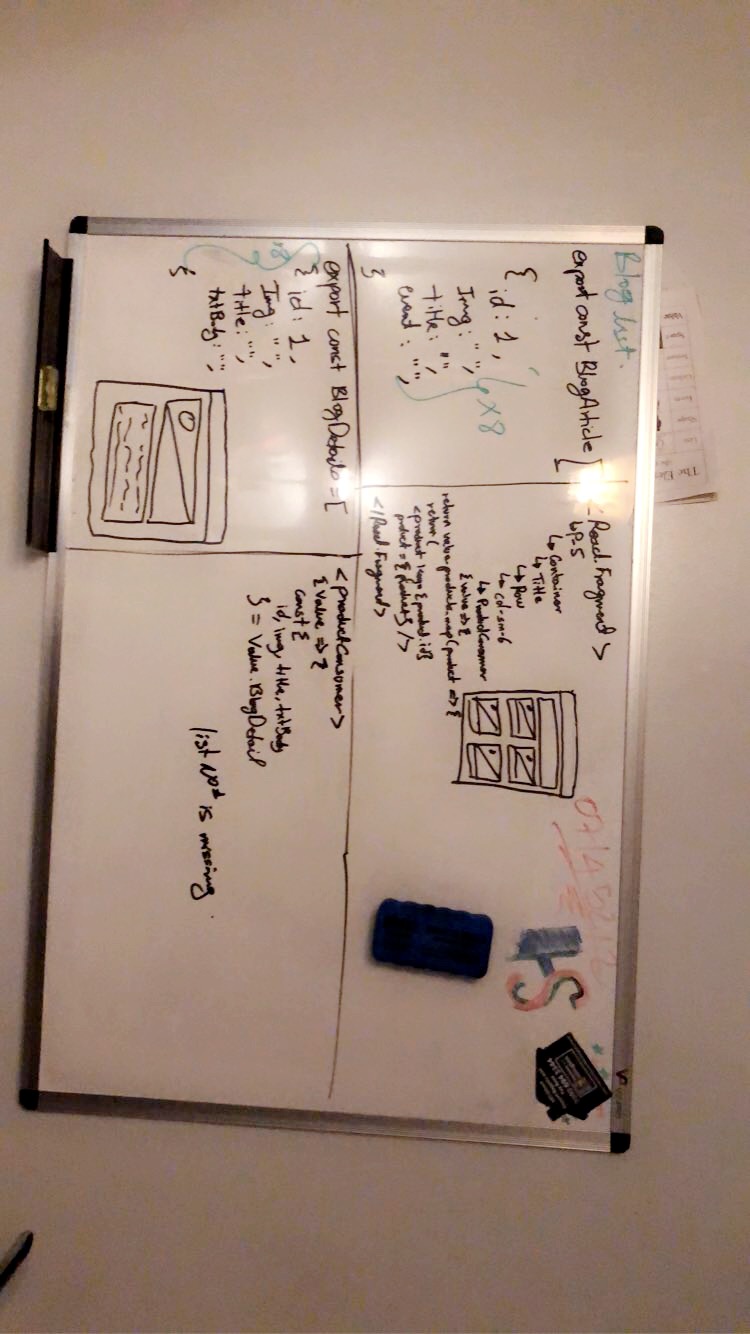 Blog list.
export const BlogArticle [
{
id: 1,
Img: " ",
title: " ",
event: " ",
}
x8
<React.Fragment>
↳P-5
↳ Container
↳ Title
↳ Row
↳ col-sm-6
↳ ProductConsomer
{value => {
return value.products.map(product => {
return (
<product key={product.id}
product={product} />
</React.Fragment>
HS
export const BlogDetails = [
{ id: 1,
Img: " ",
title: " ",
txtBody: " ",
}
x8
<productConsomer>
{value => {
const {
id, img, title, txtBody
} = Value.BlogDetail
list is missing